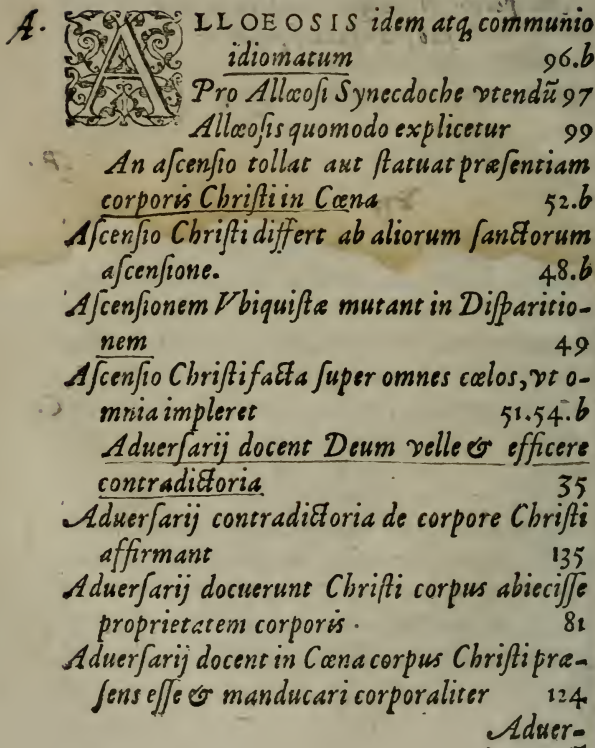 A. ALLOEOSIS idem atq; communio
idiomatum 96.b
Pro Allœosi Synecdoche vtendũ 97
Allœosis quomodo explicetur 99
An ascensio tollat aut statuat præsentiam
corporis Christi in Cœna 52.b
Ascensio Christi differt ab aliorum sanctorum
ascensione. 48.b
Ascensionem Vbiquistæ mutant in Disparitio-
nem 49
Ascensio Christi facta super omnes cœlos, vt o-
mnia impleret 51.54.b
Aduersarij docent Deum velle & efficere
contradictoria 35
Aduersarij contradictoria de corpore Christi
affirmant 135
Aduersarij docuerunt Christi corpus abiecisse
proprietatem corporis. 81
Aduersarij docent in Cœna corpus Christi præ-
sens esse & manducari corporaliter 124
Aduer-